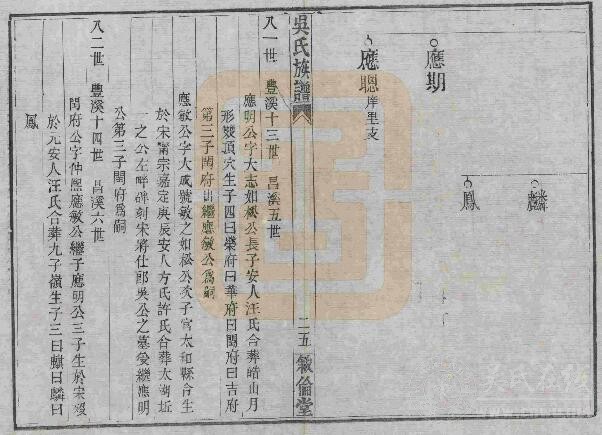 應期
麟
鳳
應聰岸里支
吳氏族譜
二五
敘倫堂
八一世 豐溪十三世 昌溪五世
應明公字大志如松公長子安人汪氏合葬皓山月
形雙頂穴生子四曰榮府曰華府曰閏府曰吉府
第三子閏府出繼應敏公爲嗣
應敏公字大成號敏之如松公次子官太和縣令生
於宋甯宗嘉定庚辰安人方氏許氏合葬太湖坵
一之公左畔碑刻宋將仕郎吳公之墓爰繼應明
公第三子閏府爲嗣
八二世 豐溪十四世 昌溪六世
閏府公字仲熙應敏公繼子應明公三子生於宋
於元安人汪氏合葬九子嶺生子三曰麒曰麟曰
鳳